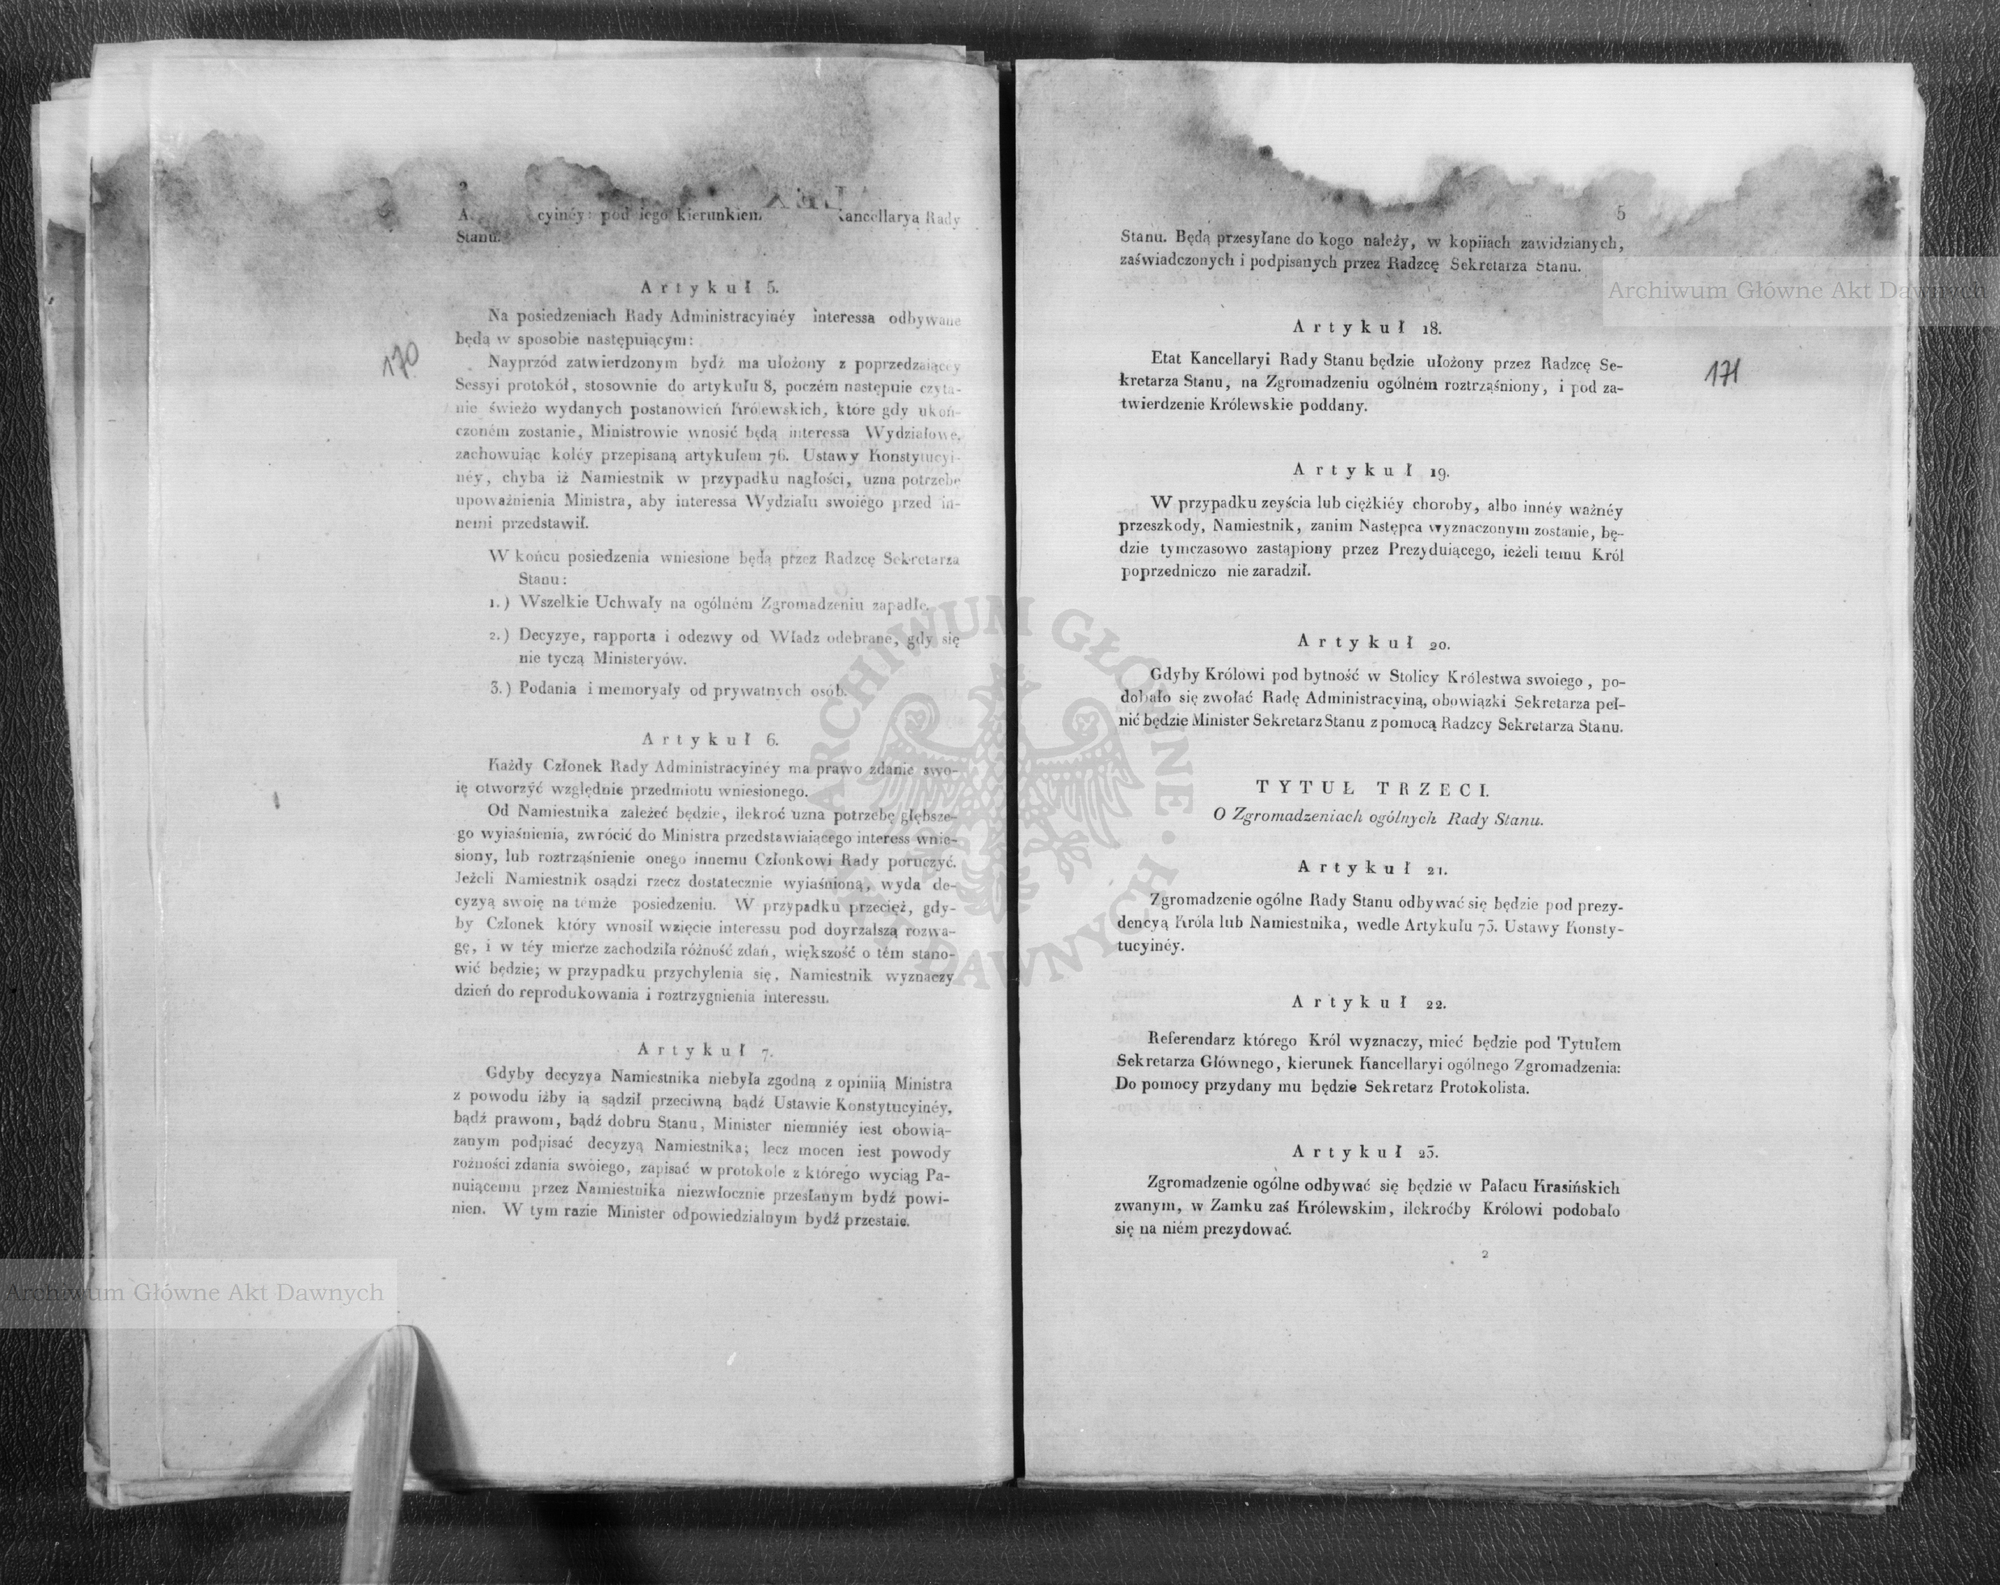 2
cyinéy: pod iego kierunkiem Kancellarya Rady
Stanu.
Artykuł 5.
Na posiedzeniach Rady Administracyinéy interessa odbywane
będą w sposobie następuiącym:
Nayprzód zatwierdzonym bydź ma ułożony z poprzedzaiącéy
Sessyi protokół, stosownie do artykułu 8, poczém następuie czyta-
nie świeżo wydanych postanowień Królewskich, które gdy ukoń-
czoném zostanie, Ministrowie wnosić będą interessa Wydziałowe,
zachowuiąc koléy przepisaną artykułem 76. Ustawy Konstytucyi-
néy, chyba iż Namiestnik w przypadku nagłości, uzna potrzebę
upoważnienia Ministra, aby interessa Wydziału swoiégo przed in-
nemi przedstawił.
W końcu posiedzenia wniesione będą przez Radzcę Sekretarza
Stanu:
1.) Wszelkie Uchwały na ogólném Zgromadzeniu zapadłe.
2.) Decyzye, rapporta i odezwy od Władz odebrane, gdy się
nie tyczą Ministeryów.
3.) Podania i memoryały od prywatnych osób.
Artykuł 6.
Każdy Członek Rady Administracyinéy ma prawo zdanie swo-
ię otworzyć względnie przedmiotu wniesionego.
Od Namiestnika zależeć będzie, ilekroć uzna potrzebę głębsze-
go wyiaśnienia, zwrócić do Ministra przedstawiaiącego interess wnie-
siony, lub roztrząśnienie onego innemu Członkowi Rady poruczyć.
Jeżeli Namiestnik osądzi rzecz dostatecznie wyiaśnioną, wyda de-
cyzyą swoię na témże posiedzeniu. W przypadku przecięż, gdy-
by Członek który wnosił wzięcie interessu pod doyrzalszą rozwa-
gę, i w téy mierze zachodziła różność zdań, większość o tém stano-
wić będzie; w przypadku przychylenia się, Namiestnik wyznaczy
dzień do reprodukowania i roztrzygnienia interessu.
Artykuł 7.
Gdyby decyzya Namiestnika niebyła zgodną z opiniią Ministra
z powodu iżby ią sądził przeciwną bądź Ustawie Konstytucyinéy,
bądź prawom, bądź dobru Stanu, Minister niemniéy iest obowią-
zanym podpisać decyzyą Namiestnika; lecz mocen iest powody
rożności zdania swoiego, zapisać w protokole z którego wyciąg Pa-
nuiącemu przez Namiestnika niezwłocznie przesłanym bydź powi-
nien. W tym razie Minister odpowiedzialnym bydź przestaie.
170
5
Stanu. Będą przesyłane do kogo należy, w kopiiach zawidzianych,
zaświadczonych i podpisanych przez Radzcę Sekretarza Stanu.
Artykuł 18.
Etat Kancellaryi Rady Stanu będzie ułożony przez Radzcę Se-
kretarza Stanu, na Zgromadzeniu ogólném roztrząśniony, i pod za-
twierdzenie Królewskie poddany.
Artykuł 19.
W przypadku zeyścia lub ciężkiéy choroby, albo innéy ważnéy
przeszkody, Namiestnik, zanim Następca wyznaczonym zostanie, bę-
dzie tymczasowo zastąpiony przez Prezyduiącego, ieżeli temu Król
poprzedniczo nie zaradził.
Artykuł 20.
Gdyby Królowi pod bytność w Stolicy Królestwa swoiego, po-
dobało się zwołać Radę Administracyiną, obowiązki Sekretarza peł-
nić będzie Minister Sekretarz Stanu z pomocą Radzcy Sekretarza Stanu.
TYTUŁ TRZECI.
O Zgromadzeniach ogólnych Rady Stanu.
Artykuł 21.
Zgromadzenie ogólne Rady Stanu odbywać się będzie pod prezy-
dencyą Króla lub Namiestnika, wedle Artykułu 73. Ustawy Konsty-
tucyinéy.
Artykuł 22.
Referendarz którego Król wyznaczy, mieć będzie pod Tytułem
Sekretarza Głównego, kierunek Kancellaryi ogólnego Zgromadzenia:
Do pomocy przydany mu będzie Sekretarz Protokolista.
Artykuł 23.
Zgromadzenie ogólne odbywać się będzie w Pałacu Krasińskich
zwanym, w Zamku zaś Królewskim, ilekroćby Królowi podobało
się na niém prezydować.
2
171
Archiwum Główne Akt Dawnych
Archiwum Główne Akt Dawnych
ARCHIWUM GŁÓWNE AKT DAWNYCH